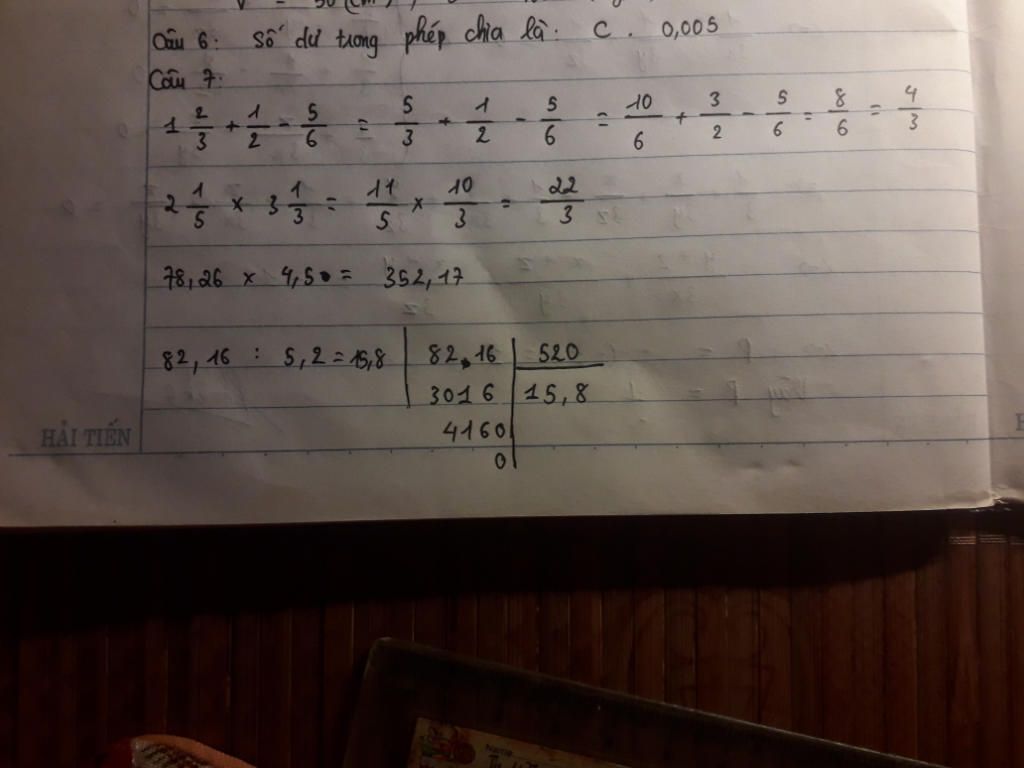 V = 50 (cm
Câu 6: Số dư trong phép chia là: C. 0,005
Câu 7:
1 2/3 + 1/2 - 5/6 = 5/3 + 1/2 - 5/6 = 10/6 + 3/2 - 5/6 = 8/6 = 4/3
2 1/5 x 3 1/3 = 11/5 x 10/3 = 22/3
78,26 x 4,5 = 352,17
82,16 : 5,2 = 15,8 | 82,16 | 520
3016 | 15,8
4160
0
HẢI TIẾN